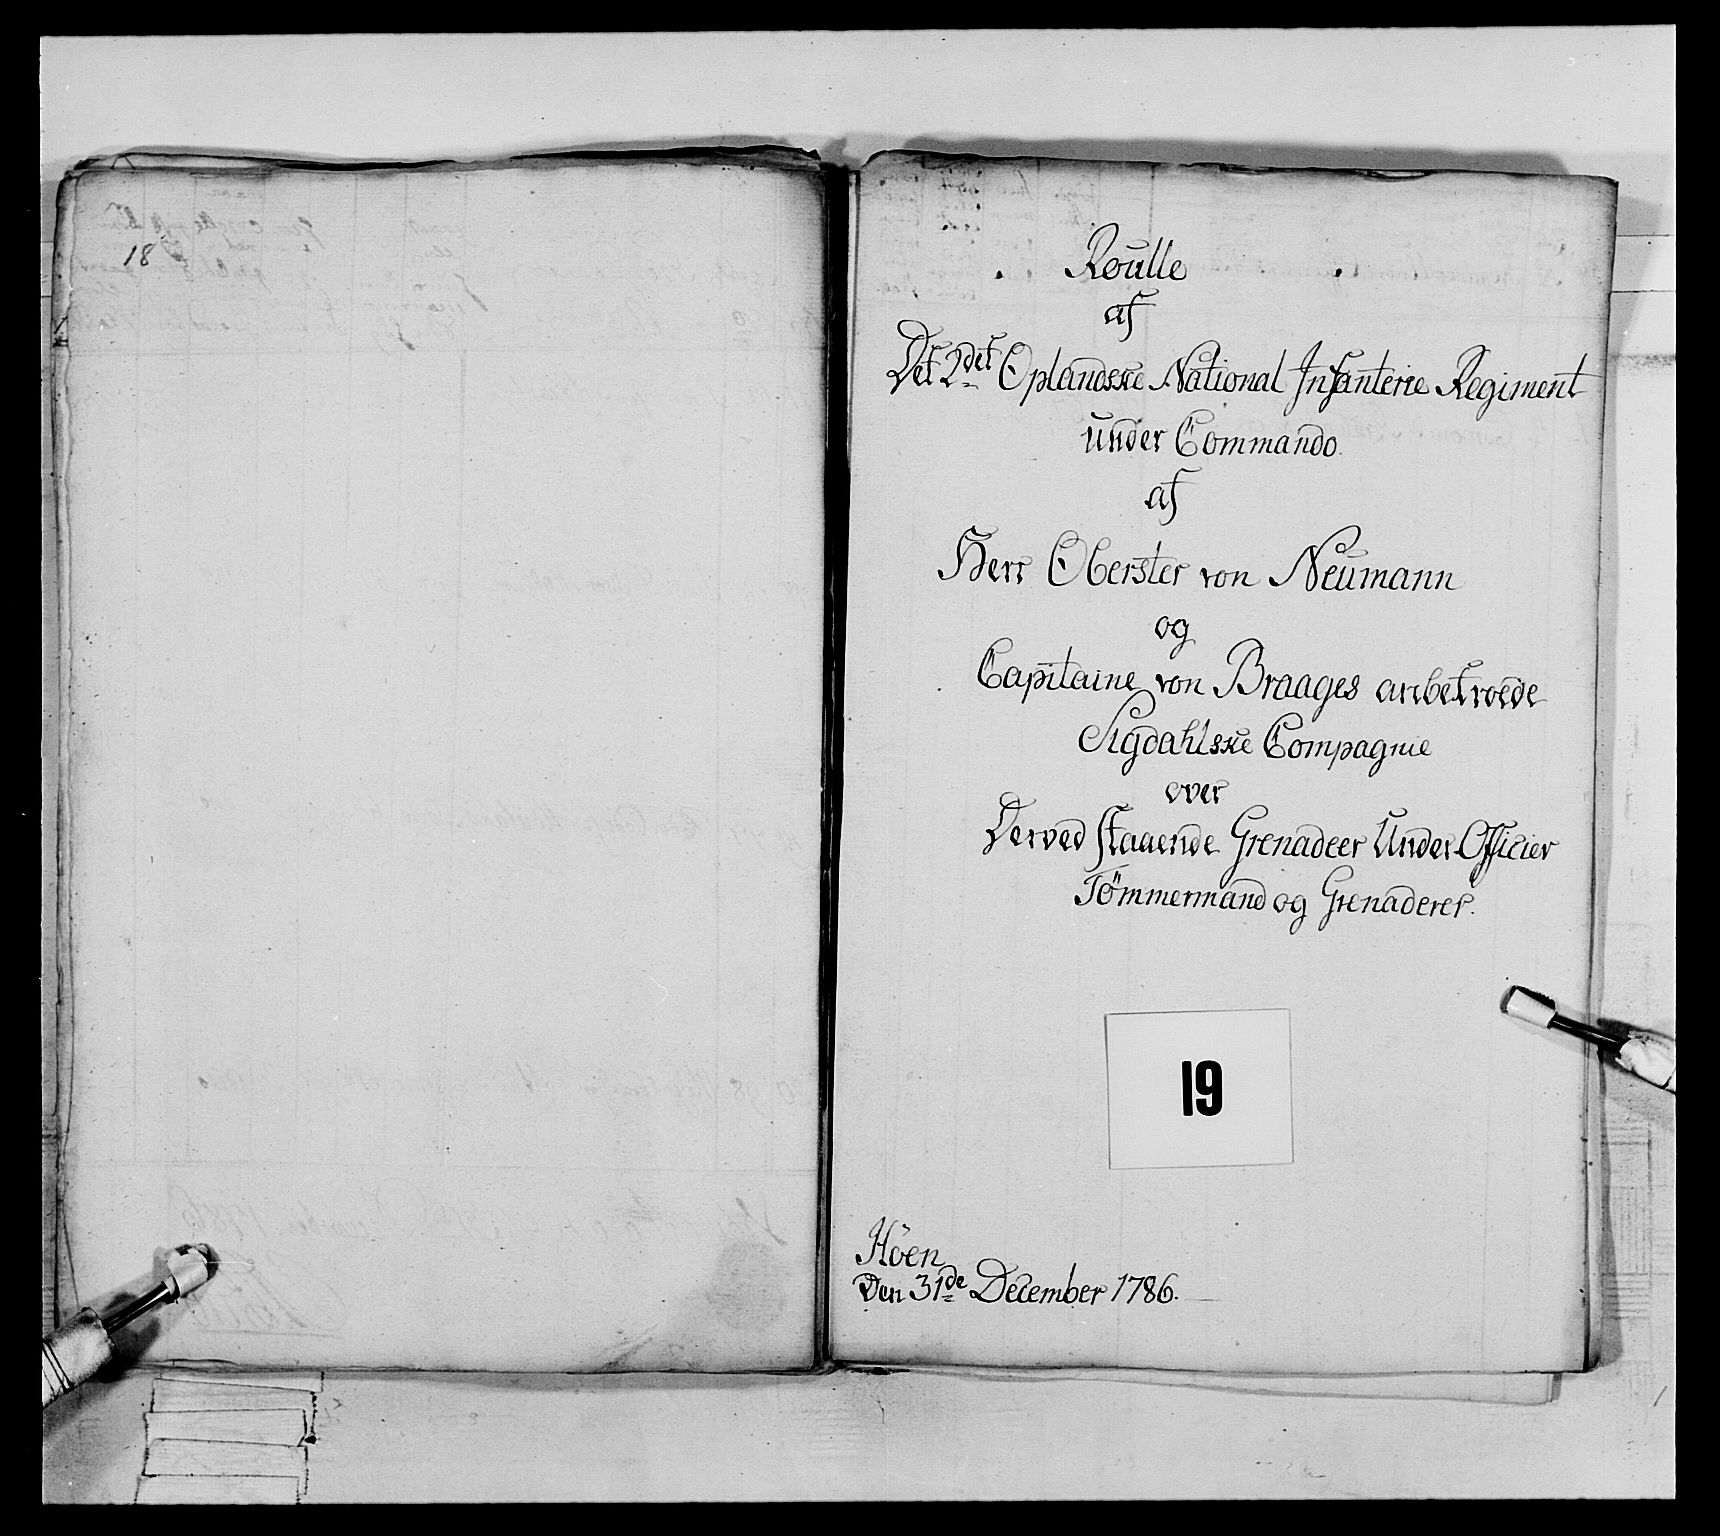 18
Roulle
af
Det 2det Oplandske National Infanterie Regiment
under Commando.
af
Herr Oberster von Neumann
og
Capitaine von Braages anbetroede
Sigdahlske Compagnie
over
Derved staaende Grenadeer Under Officier
Tömmermand og Grenaderer.
19
Höen
Den 31de December 1786.